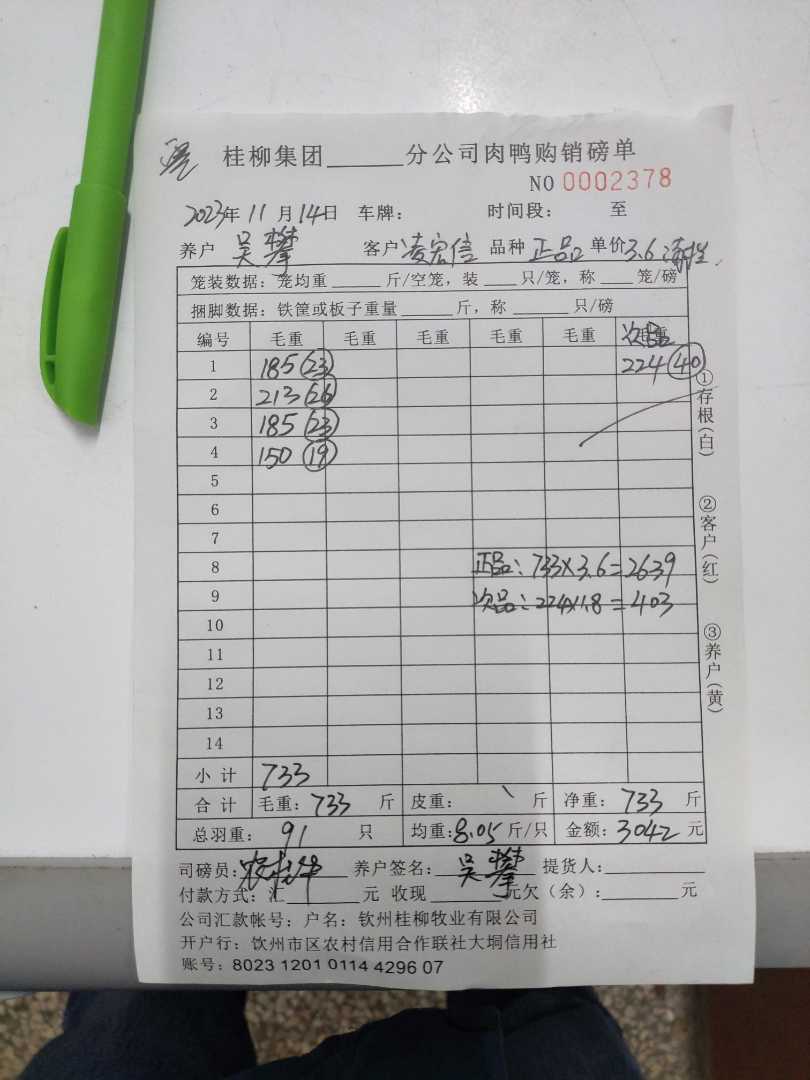 桂柳集团______分公司肉鸭购销磅单
NO 0002378
2023年 11 月 14日 车牌： 时间段： 至
养户 吴攀 客户 凌宏信 品种 正品 单价 3.6
笼装数据：笼均重______斤/空笼，装____只/笼，称____笼/磅
捆脚数据：铁筐或板子重量______斤，称______只/磅
编号 毛重 毛重 毛重 毛重 毛重 次品
1 185 (23) 224 (40)
2 213 (26)
3 185 (23)
4 150 (19)
5
6
7
8 正品：733×3.6=2639
9 次品：224×1.8=403
10
11
12
13
14
小 计 733
合 计 毛重：733 斤 皮重：\ 斤 净重：733 斤
总羽重： 91 只 均重：8.05 斤/只 金额：3042 元
司磅员： 养户签名：吴攀 提货人：
付款方式：汇______元 收现______元欠（余）：______元
公司汇款帐号：户名：钦州桂柳牧业有限公司
开户行：钦州市区农村信用合作联社大垌信用社
账号：8023 1201 0114 4296 07
①存根（白）
②客户（红）
③养户（黄）